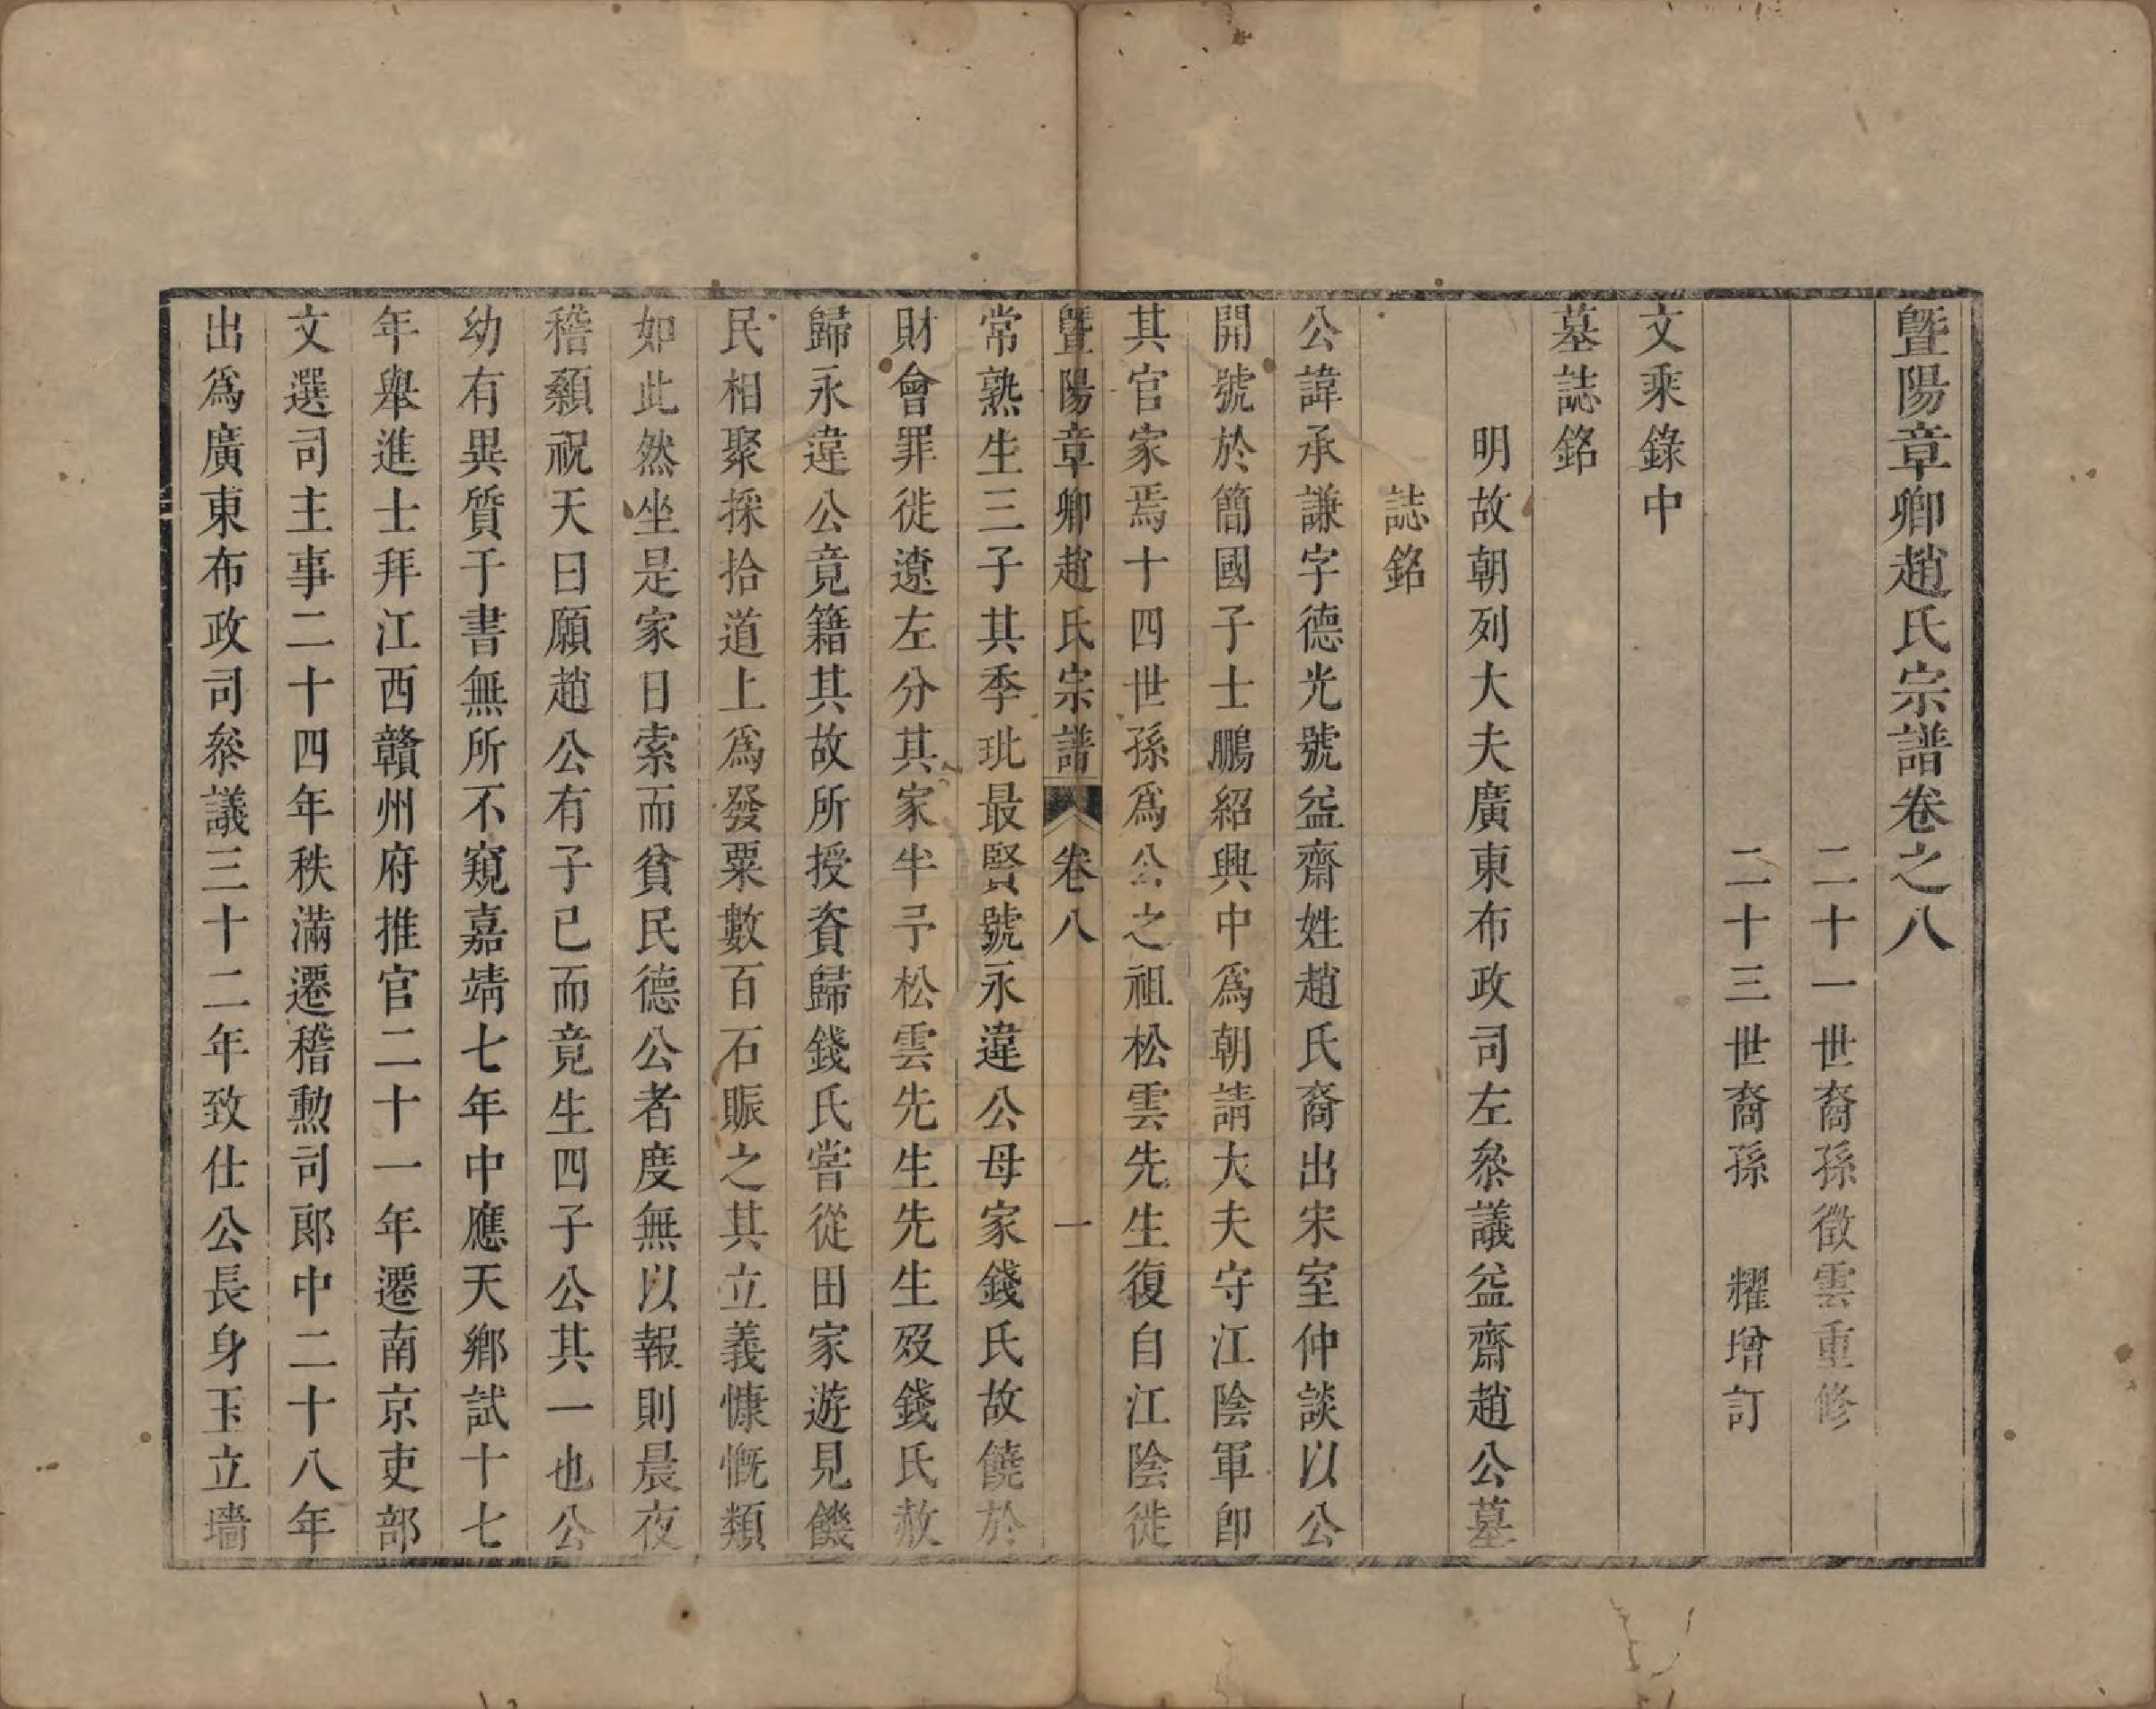 暨陽章卿趙氏宗譜卷之八
二十一世裔孫徵雲重修
二十三世裔孫　耀增訂
文乘錄中
墓誌銘
明故朝列大夫廣東布政司左叅議益齋趙公墓
誌銘
公諱承謙字德光號益齋姓趙氏裔出宋室仲談以公
開號於簡國子士鵬紹興中為朝請大夫守江陰軍卽
其官家焉十四世孫爲公之祖松雲先生復自江陰徙
暨陽章卿趙氏宗譜　卷八　一
常熟生三子其季玭最賢號永違公母家錢氏故饒於
財會罪徙遼左分其家半予松雲先生先生歿錢氏赦
歸永違公竟籍其故所授貲歸錢氏嘗從田家遊見饑
民相聚採拾道上爲發粟數百石賑之其立義慷慨類
如此然坐是家日索而貧民德公者度無以報則晨夜
稽顙祝天曰願趙公有子已而竟生四子公其一也公
幼有異質于書無所不窺嘉靖七年中應天鄉試十七
年舉進士拜江西贛州府推官二十一年遷南京吏部
文選司主事二十四年秩滿遷稽勲司郎中二十八年
出爲廣東布政司叅議三十二年致仕公長身玉立墻